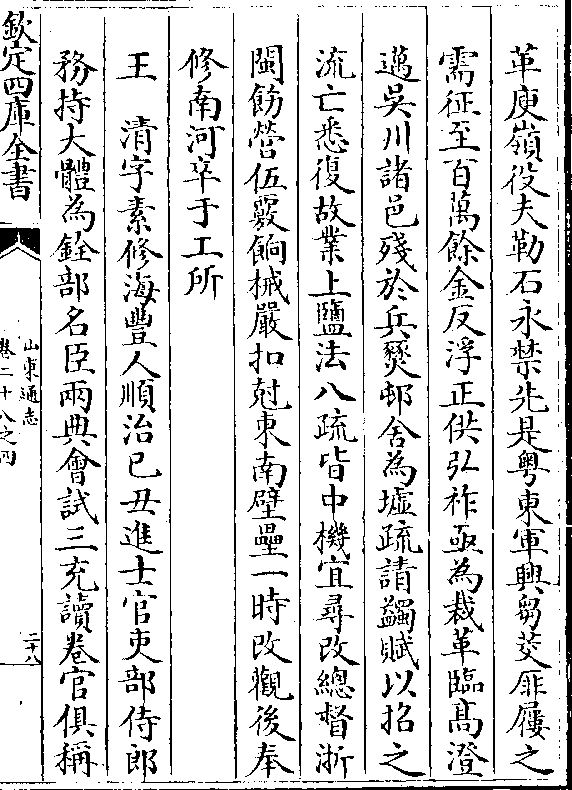 革庾嶺役夫勒石永禁先是粤東軍興芻茭屝屨之
需征至百萬餘金反浮正供弘祚亟為裁革臨髙澄
邁吳川諸邑殘於兵燹邨舍為墟疏請蠲賦以招之
流亡悉復故業上鹽法八疏皆中機宜尋改總督浙
閩飭營伍覈餉械嚴扣尅東南壁壘一時改觀後奉
修南河卒于工所
王　清字素修海豐人順治己丑進士官吏部侍郎
務持大體為銓部名臣兩典會試三充讀卷官俱稱
欽定四庫全書
山東通志
卷二十八之四
二十八